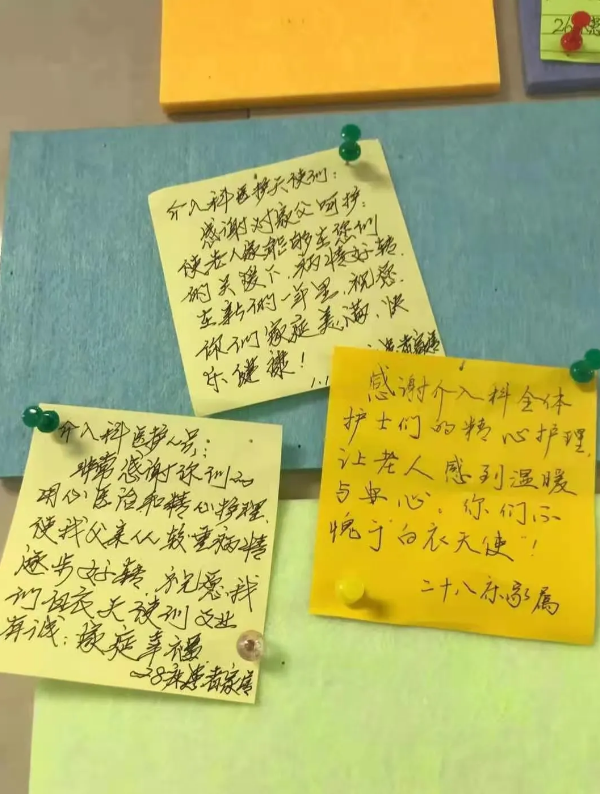 介入科医护天使们：
感谢对家父呵护；
使老人家能够在你们
的关爱下，病情好转.
在新的一年里，祝愿
你们家庭美满、快
乐健康！
患者家属
1.1
介入科医护人员：
非常感谢你们的
用心医治和精心护理，
使我父亲从较重病情
逐步好转 祝愿我
们白衣天使们
家庭幸福
28床患者家属
感谢介入科全体
护士们的精心护理，
让老人感到温暖
与安心。你们不
愧于"白衣天使"！
二十八床家属
26